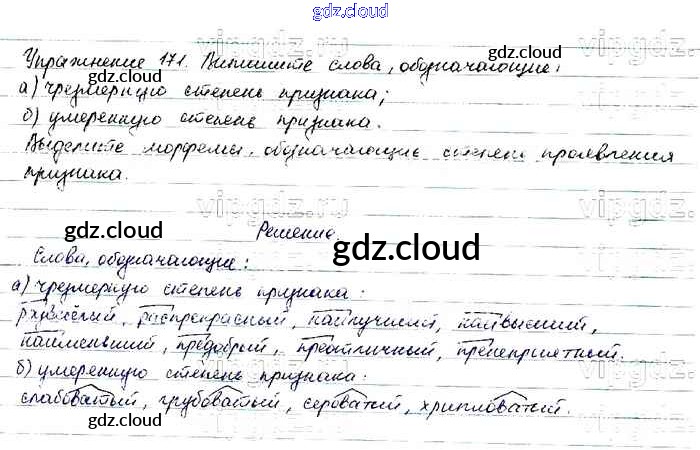 gdz.cloud
gdz.cloud
Упражнение 171. Выпишите слова, обозначающие:
gdz.cloud
а) чрезмерную степень признака;
б) умеренную степень признака.
Выделите морфемы, обозначающие степень проявления
признака.
gdz.cloud
Решение.
gdz.cloud
Слова, обозначающие:
а) чрезмерную степень признака:
распрекрасный, наилучший, наивысший,
наименьший, предобрый, преотличный, пренеприятный.
б) умеренную степень признака:
слабоватый, грубоватый, сероватый, хрипловатый.
gdz.cloud
gdz.cloud